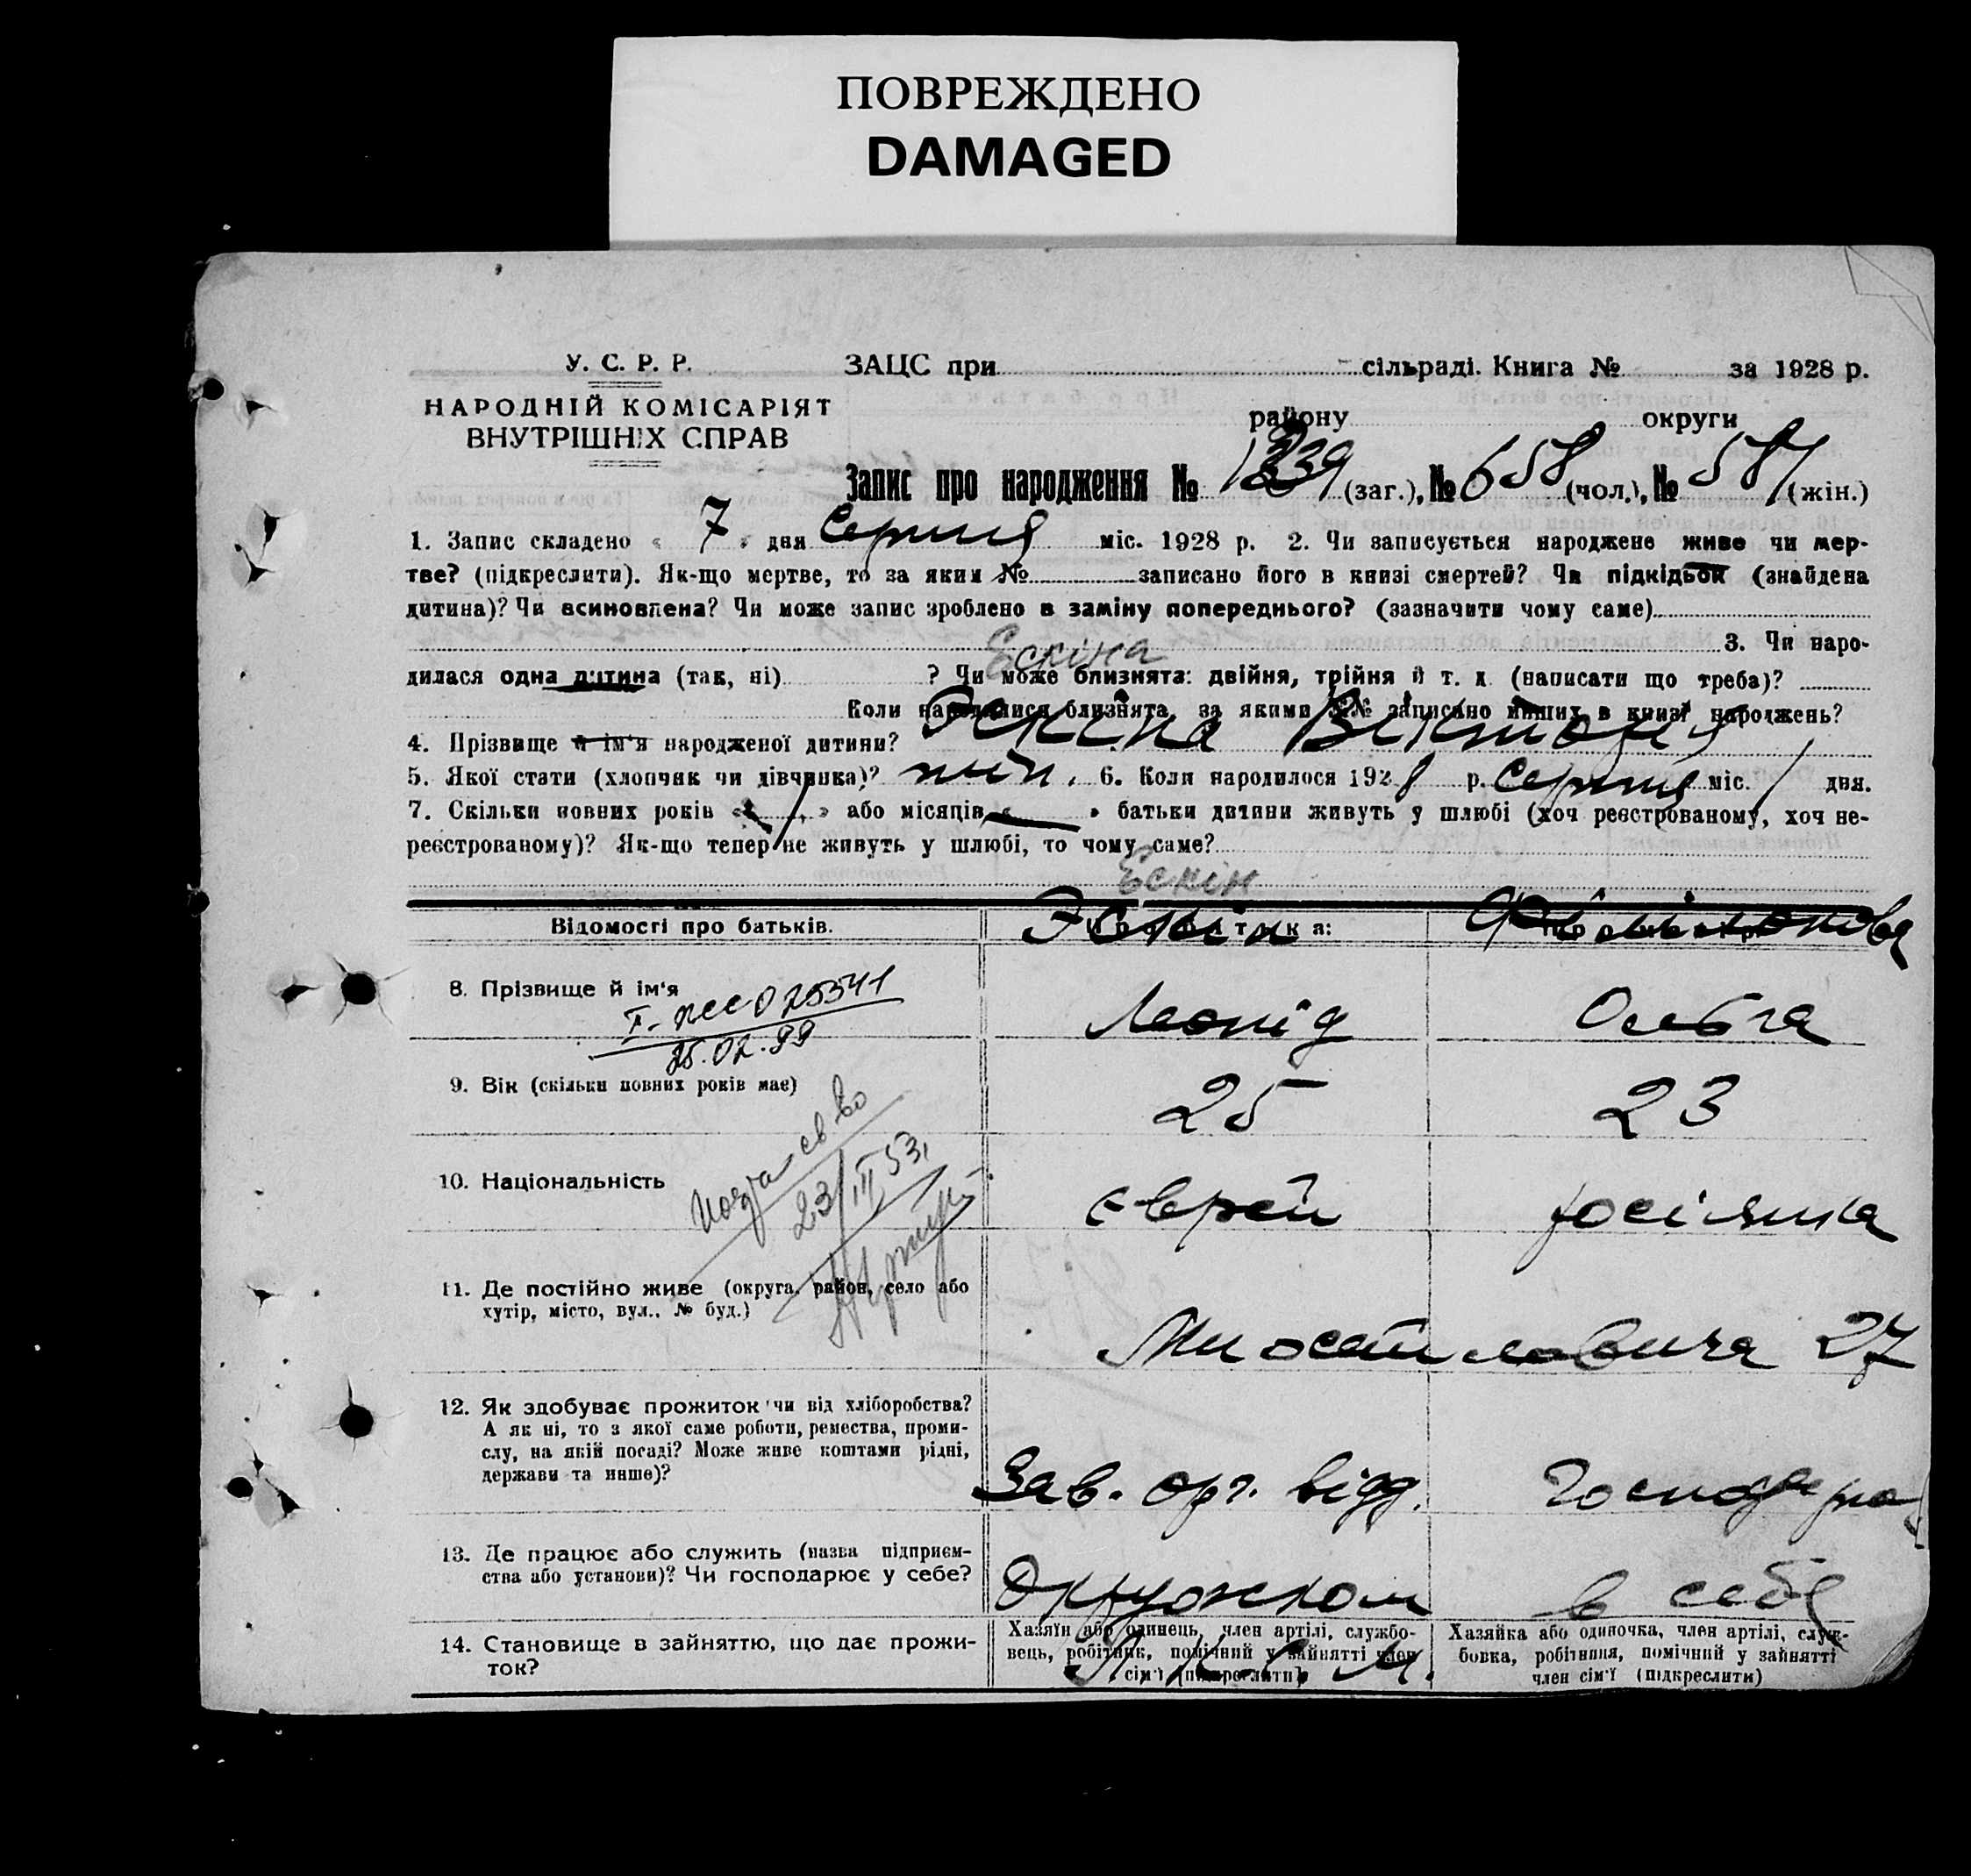 ПОВРЕЖДЕНО
DAMAGED
У. С. Р. Р.
ЗАЦС при сільраді. Книга № за 1928 р.
НАРОДНІЙ КОМІСАРІЯТ
ВНУТРІШНІХ СПРАВ
району округи
Запис про народження № 1239 (заг.), № 658 (чол.), № 581 (жін.)
1. Запис складено « 7 » дня Серпня міс. 1928 р. 2. Чи записується народжене живе чи мер-
тве? (підкреслити). Як-що мертве, то за яким № записано його в книзі смертей? Чи підкідьок (знайдена
дитина)? Чи всиновлена? Чи може запис зроблено в заміну попереднього? (зазначити чому саме)
3. Чи наро-
Ескіна
дилася одна дитина (так, ні) ? Чи може близнята: двійня, трійня й т. д. (написати що треба)?
Коли народилися близнята, за якими №№ записано инших в книзі народжень?
4. Прізвище й ім'я народженої дитини? Эскіна Вікторія
5. Якої стати (хлопчик чи дівчинка)? жін. 6. Коли народилося 1928 р. Серпня міс. 1 дня.
7. Скільки повних років « 1 » або місяців « — » батьки дитини живуть у шлюбі (хоч реєстрованому, хоч не-
реєстрованому)? Як-що тепер не живуть у шлюбі, то чому саме?
Ескін
Відомості про батьків. Эскін
8. Прізвище й ім'я Леонід Ольга
25.02.99
9. Він (скільки повних років має) 25 23
23/III 53.
10. Національність єврей росіянка
11. Де постійно живе (округа, район, село або
хутір, місто, вул., № буд.)
27
12. Як здобуває прожиток чи від хліборобства?
А як ні, то з якої саме роботи, ремества, проми-
слу, на якій посаді? Може живе коштами рідні,
держави та инше)?
Зав. орг. відд. Господарка
13. Де працює або служить (назва підприєм-
ства або установи)? Чи господарює у себе?
Окружком в себе
14. Становище в зайняттю, що дає прожи-
ток?
Хазяїн або одинець, член артілі, службо-
вець, робітник, помічний у зайнятті член
сім'ї (підкреслити)
Хазяйка або одиночка, член артілі, служ-
бовка, робітниця, помічний у зайнятті
член сім'ї (підкреслити)